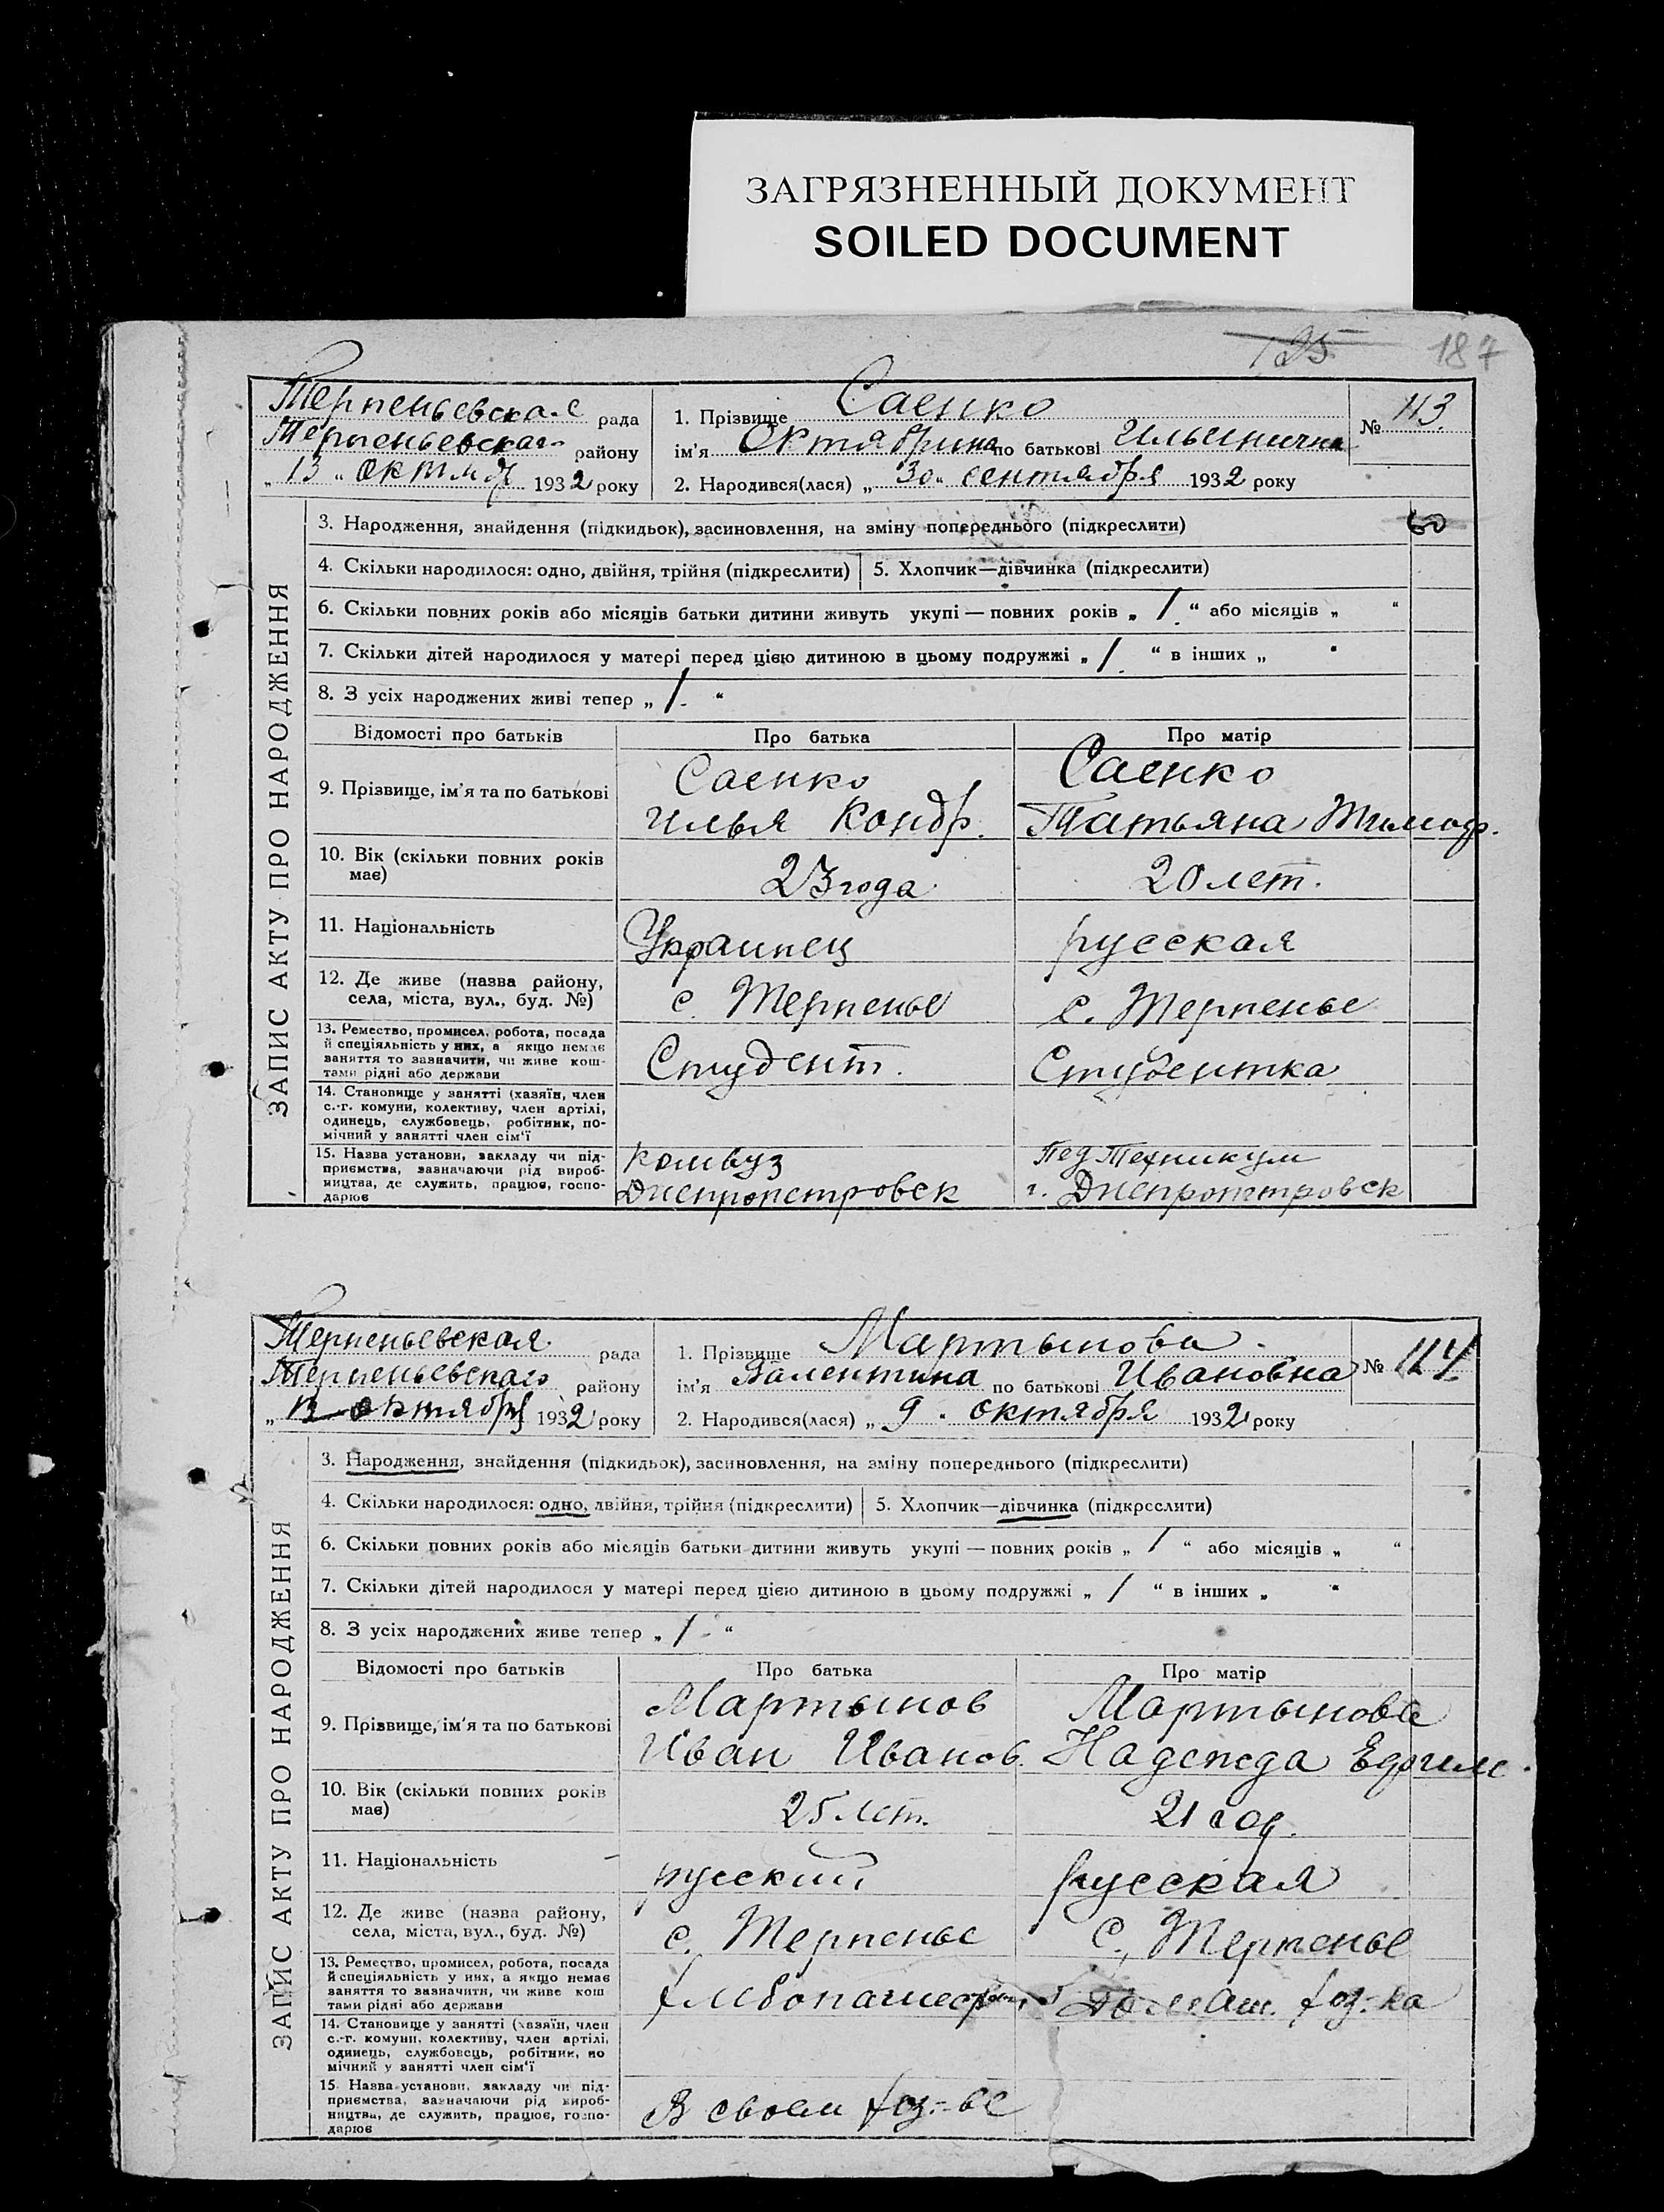 ЗАГРЯЗНЕННЫЙ ДОКУМЕНТ
SOILED DOCUMENT
125 187
Терпеньевская рада
Терпеньевская району
„13“ октяб 1932 року
1. Прізвище Саенко
ім'я Октябрина по батькові Ильинична
2. Народився(лася) „30“ сентября 1932 року
№ 113.
ЗАПИС АКТУ ПРО НАРОДЖЕННЯ
3. Народження, знайдення (підкидьок), засиновлення, на зміну попереднього (підкреслити)
4. Скільки народилося: одно, двійня, трійня (підкреслити) 5. Хлопчик—дівчинка (підкреслити)
6. Скільки повних років або місяців батьки дитини живуть укупі — повних років „ 1. “ або місяців „ “
7. Скільки дітей народилося у матері перед цією дитиною в цьому подружжі „ 1. “ в інших „ “
8. З усіх народжених живі тепер „ 1. “
Відомості про батьків Про батька Про матір
9. Прізвище, ім'я та по батькові
Саенко
Илья Кондр.
Саенко
Татьяна Тимоф.
10. Вік (скільки повних років
має)
23 года
20 лет.
11. Національність
Украинец
русская
12. Де живе (назва району,
села, міста, вул., буд. №)
с. Терпенье
с. Терпенье
13. Ремество, промисел, робота, посада
й спеціяльність у них, а якщо немає
заняття то зазначити, чи живе кош-
тами рідні або держави
Студент.
Студентка
14. Становище у занятті (хазяїн, член
с.-г. комуни, колективу, член артілі,
одинець, службовець, робітник, по-
мічний у занятті член сім'ї
15. Назва установи, закладу чи під-
приємства, зазначаючи рід вироб-
ництва, де служить, працює, госпо-
дарює
Комвуз
Днепропетровск
Пед Техникум
г. Днепропетровск
Терпеньевская рада
Терпеньевского району
„13 октября 1932 року
1. Прізвище Мартынова
ім'я Валентина по батькові Ивановна
2. Народився(лася) „ 9 . октября 1932 року
№ 114.
ЗАПИС АКТУ ПРО НАРОДЖЕННЯ
3. Народження, знайдення (підкидьок), засиновлення, на зміну попереднього (підкреслити)
4. Скільки народилося: одно, двійня, трійня (підкреслити) 5. Хлопчик—дівчинка (підкреслити)
6. Скільки повних років або місяців батьки дитини живуть укупі — повних років „ 1 “ або місяців „ “
7. Скільки дітей народилося у матері перед цією дитиною в цьому подружжі „ 1 “ в інших „ “
8. З усіх народжених живе тепер „ 1 - “
Відомості про батьків Про батька Про матір
9. Прізвище, ім'я та по батькові
Мартынов
Иван Иванов.
Мартынова
Надежда Ефим.
10. Вік (скільки повних років
має)
25 лет.
21 год.
11. Національність
русский
русская
12. Де живе (назва району,
села, міста, вул., буд. №)
с. Терпенье
с. Терпенье
13. Ремество, промисел, робота, посада
й спеціяльність у них, а якщо немає
заняття то зазначити, чи живе кош
тами рідні або держави
Домаш. хоз-ка
14. Становище у занятті (хазяїн, член
с.-г. комуни, колективу, член артілі,
одинець, службовець, робітник, по
мічний у занятті член сім'ї
15. Назва установи, закладу чи під-
приємства, зазначаючи рід вироб-
ництва, де служить, працює, госпо-
дарює
В своем хоз-ве